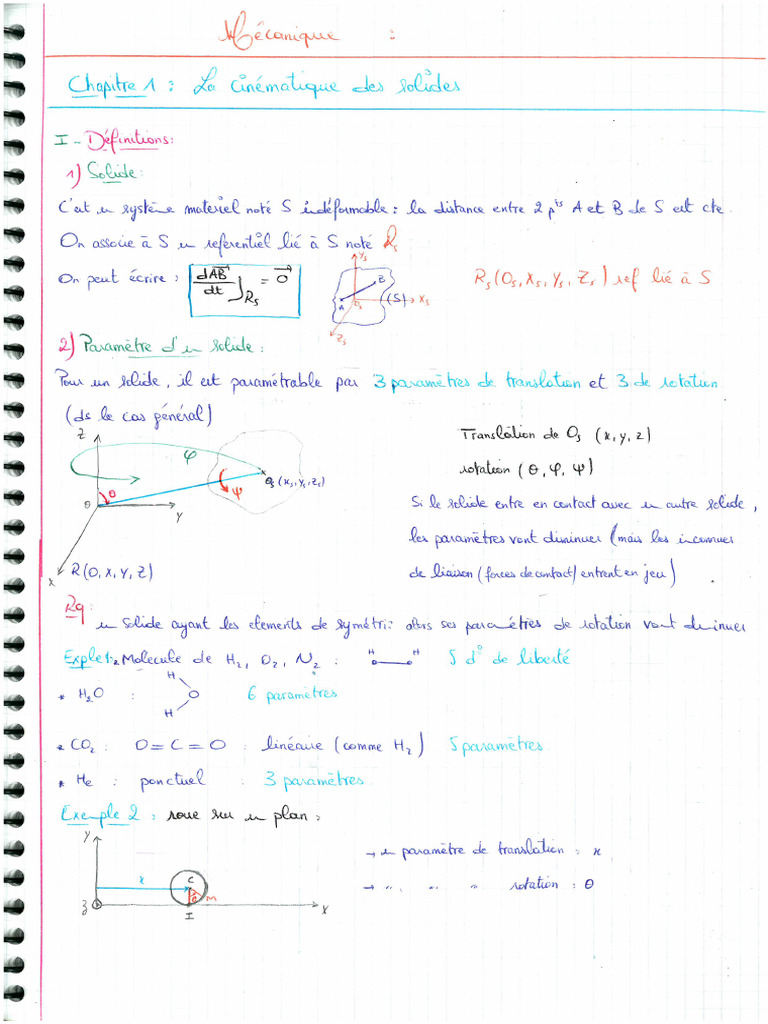 Mécanique :
Chapitre 1 : La cinématique des solides
I - Définitions:
1) Solide:
C'est un système materiel noté S indéformable : la distance entre 2 pts A et B de S est cte.
On associe à S un referentiel lié à S noté Rs
On peut écrire : dAB/dt)Rs = 0
Ys
B
A
Os
(S)
Xs
Zs
Rs(Os, Xs, Ys, Zs) ref lié à S
2) Paramètre d'un solide :
Pour un solide, il est paramétrable par 3 paramètres de translation et 3 de rotation
(ds le cas général)
Z
φ
θ
Ψ
Os (xs, ys, zs)
O
Y
X
R(O, X, Y, Z)
Translation de Os (x, y, z)
rotation (θ, φ, Ψ)
Si le solide entre en contact avec un autre solide,
les paramètres vont diminuer (mais les inconnues
de liaison (forces de contact) entrent en jeu)
Rq:
un solide ayant les elements de symétri: alors ses paramétres de rotation vont diminuer
Exple1: * Molecule de H2, O2, N2 : H H 5 d° de liberté
* H2O : H O H 6 paramètres
* CO2 : O=C=O : linéaire (comme H2) 5 paramètres
* He : ponctuel : 3 paramètres
Exemple 2 : roue sur un plan :
Y
x
C
θ
M
I
Z
X
→ un paramètre de translation : x
→ " " " rotation : θ